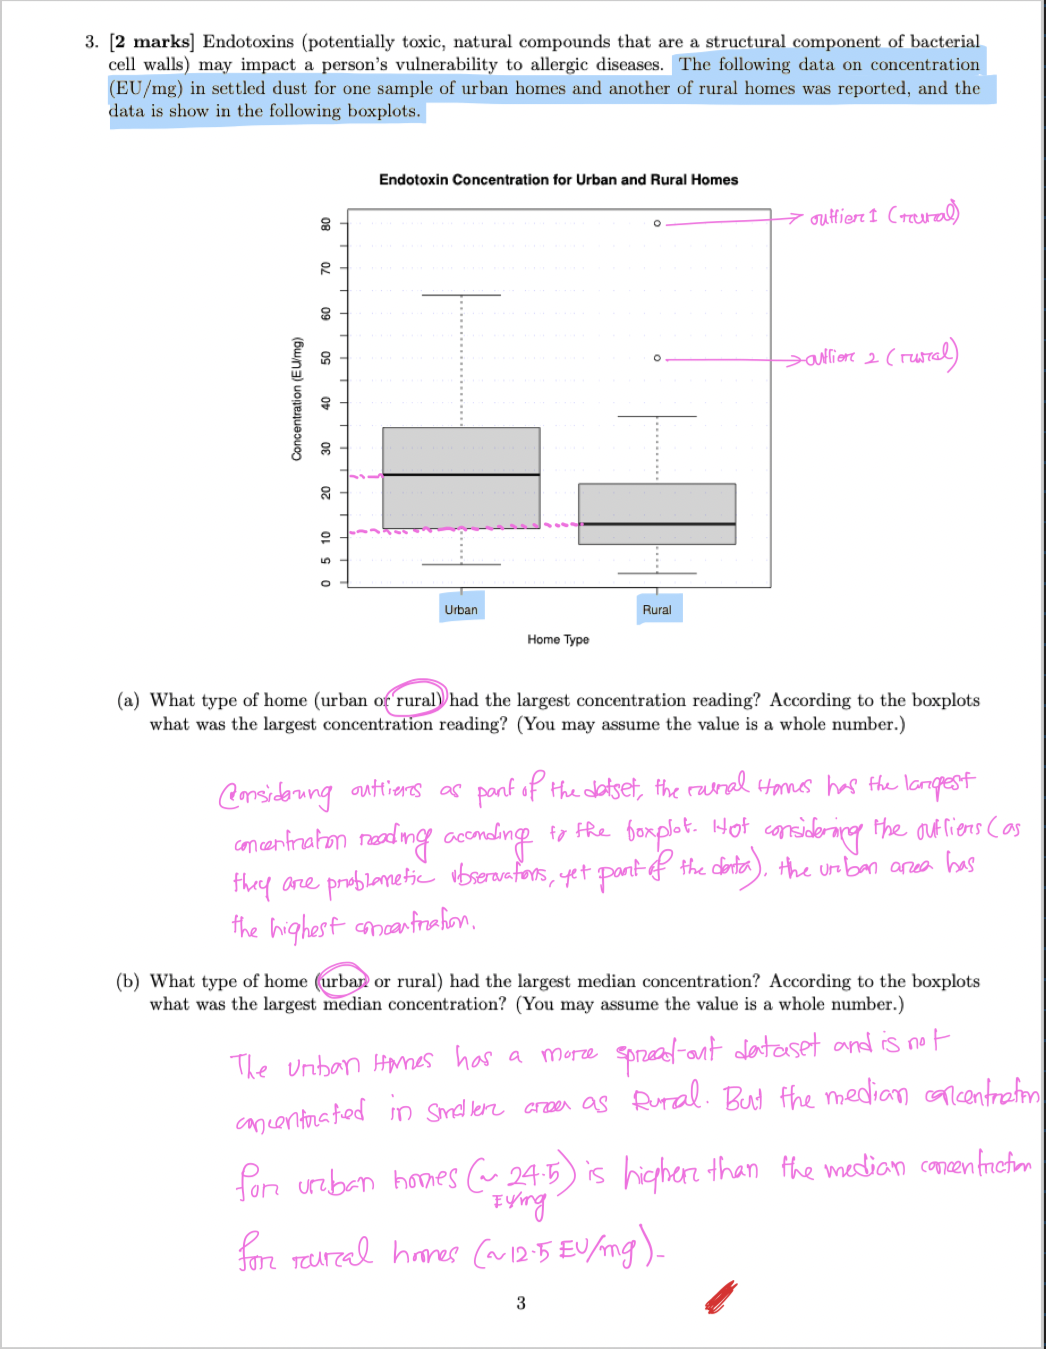 3. [2 marks] Endotoxins (potentially toxic, natural compounds that are a structural component of bacterial
cell walls) may impact a person's vulnerability to allergic diseases. The following data on concentration
(EU/mg) in settled dust for one sample of urban homes and another of rural homes was reported, and the
data is show in the following boxplots.
Endotoxin Concentration for Urban and Rural Homes
80
70
60
50
40
30
20
10
5
0
Concentration (EU/mg)
outlier 1 (rural)
outlier 2 (rural)
Urban
Rural
Home Type
(a) What type of home (urban or rural) had the largest concentration reading? According to the boxplots
what was the largest concentration reading? (You may assume the value is a whole number.)
Considering outliers as part of the dataset, the rural Homes has the largest
concentration reading according to the boxplot. Not considering the outliers (as
they are problematic observations, yet part of the data). the urban area has
the highest concentration.
(b) What type of home (urban or rural) had the largest median concentration? According to the boxplots
what was the largest median concentration? (You may assume the value is a whole number.)
The Urban Homes has a more spread-out dataset and is not
concentrated in smaller area as Rural. But the median concentration
for urban homes (~ 24.5) is higher than the median concentration
EU/mg
for rural homes (~12.5 EU/mg).
3